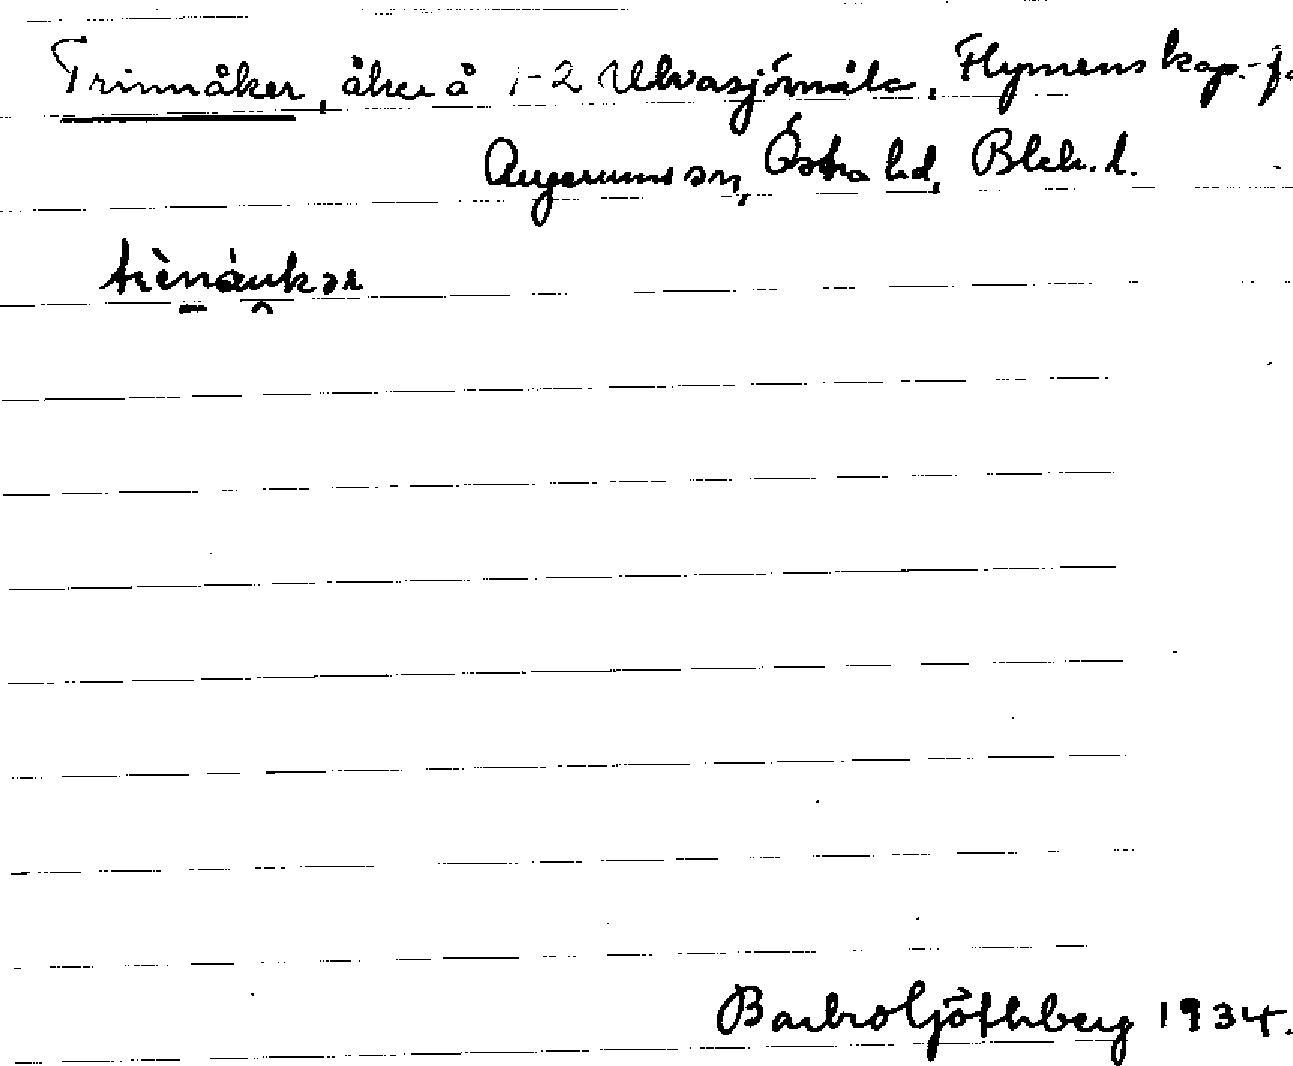 Trinnåker, åker å 1-2 Ulvasjömåla, Flymens kap.-f.
Augerums sn, Östra hd, Blek. l.
trènåukər
Barbro Göthberg 1934.